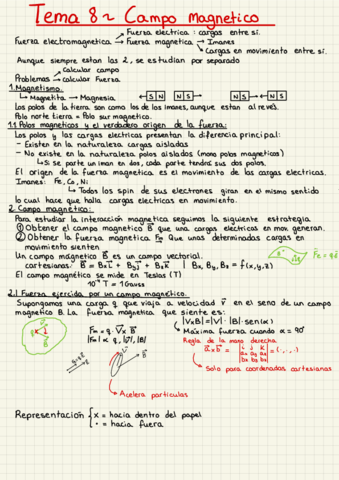 Tema 8~ Campo magnetico
Fuerza electrica : cargas entre sí.
Fuerza electromagnetica → Fuerza magnetica → Imanes
Cargas en movimiento entre sí.
Aunque siempre estan las 2, se estudian por separado
Problemas → Calcular campo
→ Calcular Fuerza
1. Magnetismo:
↳ Magnetita → Magnesia. ←S N N S→ N S→ ←N S
Los polos de la tierra son como los de los imanes, aunque estan al revés.
Polo norte tierra = Polo sur magnetico.
1.1 Polos magneticos y el verdadero origen de la fuerza:
Los polos y las cargas electricas presentan la diferencia principal:
- Existen en la naturaleza cargas aisladas
- No existe en la naturaleza polos aislados (mono polos magneticos)
↳ Si se parte un iman en dos, cada parte tendrá sus dos polos.
El origen de la fuerza magnetica es el movimiento de las cargas electricas.
Imanes: Fe, Co, Ni
↳ Todos los spin de sus electrones giran en el mismo sentido
lo cual hace que halla cargas electricas en movimiento.
2. Campo magnetico:
Para estudiar la interaccion magnetica seguimos la siguiente estrategia.
① Obtener el campo magnetico B⃗ que una cargas electricas en mov. generan.
② Obtener la fuerza magnetica Fm que unas determinadas cargas en
movimiento sienten
Fe = q·E⃗
Un campo magnetico B⃗ es un campo vectorial.
cartesianas: B⃗ = Bx i⃗ + By j⃗ + Bz k⃗ | Bx, By, Bz = f(x,y,z)
El campo magnetico se mide en Teslas (T)
10⁻⁴ T = 1 Gauss
2.1 Fuerza ejercida por un campo magnetico.
Supongamos una carga q que viaja a velocidad v⃗ en el seno de un campo
magnetico B. La fuerza magnetica que siente es:
|VxB| = |V|·|B|·sen(α)
Fm = q · V⃗ x B⃗
↳ Maxima fuerza cuando α = 90°
|Fm| α q, |v⃗|, |B|
Regla de la mano derecha
a⃗ x b⃗ = | i j k ax ay az bx by bz | = (·,·,·)
↳ Solo para coordenadas cartesianas
↳ Acelera particulas
Representación { x = hacia dentro del papel
· = hacia fuera